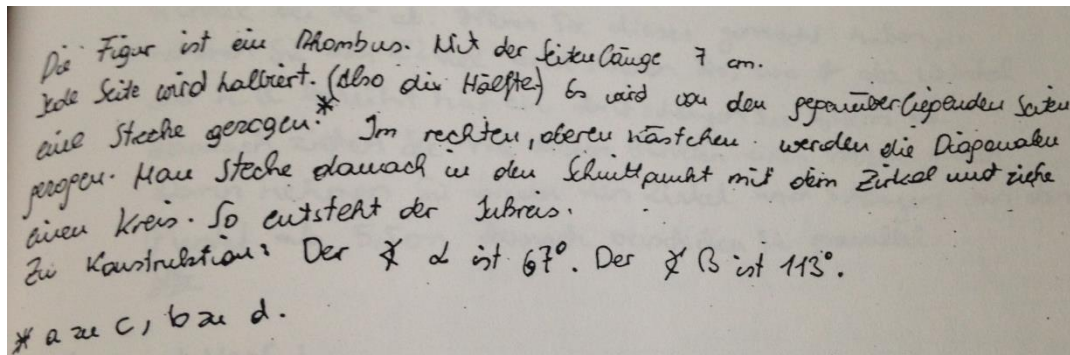 Die Figur ist ein Rhombus. Mit der Seitenlänge 7 cm.
Jede Seite wird halbiert. (Also die Hälfte) Es wird von den gegenüberliegenden Seiten
eine Strecke gezogen.* Im rechten, oberen Kästchen werden die Diagonalen
gezogen. Man steche danach in den Schnittpunkt mit dem Zirkel und ziehe
einen Kreis. So entsteht der Inkreis.
Zur Konstruktion: Der ∢ α ist 67°. Der ∢ β ist 113°.
* a zu c, b zu d.